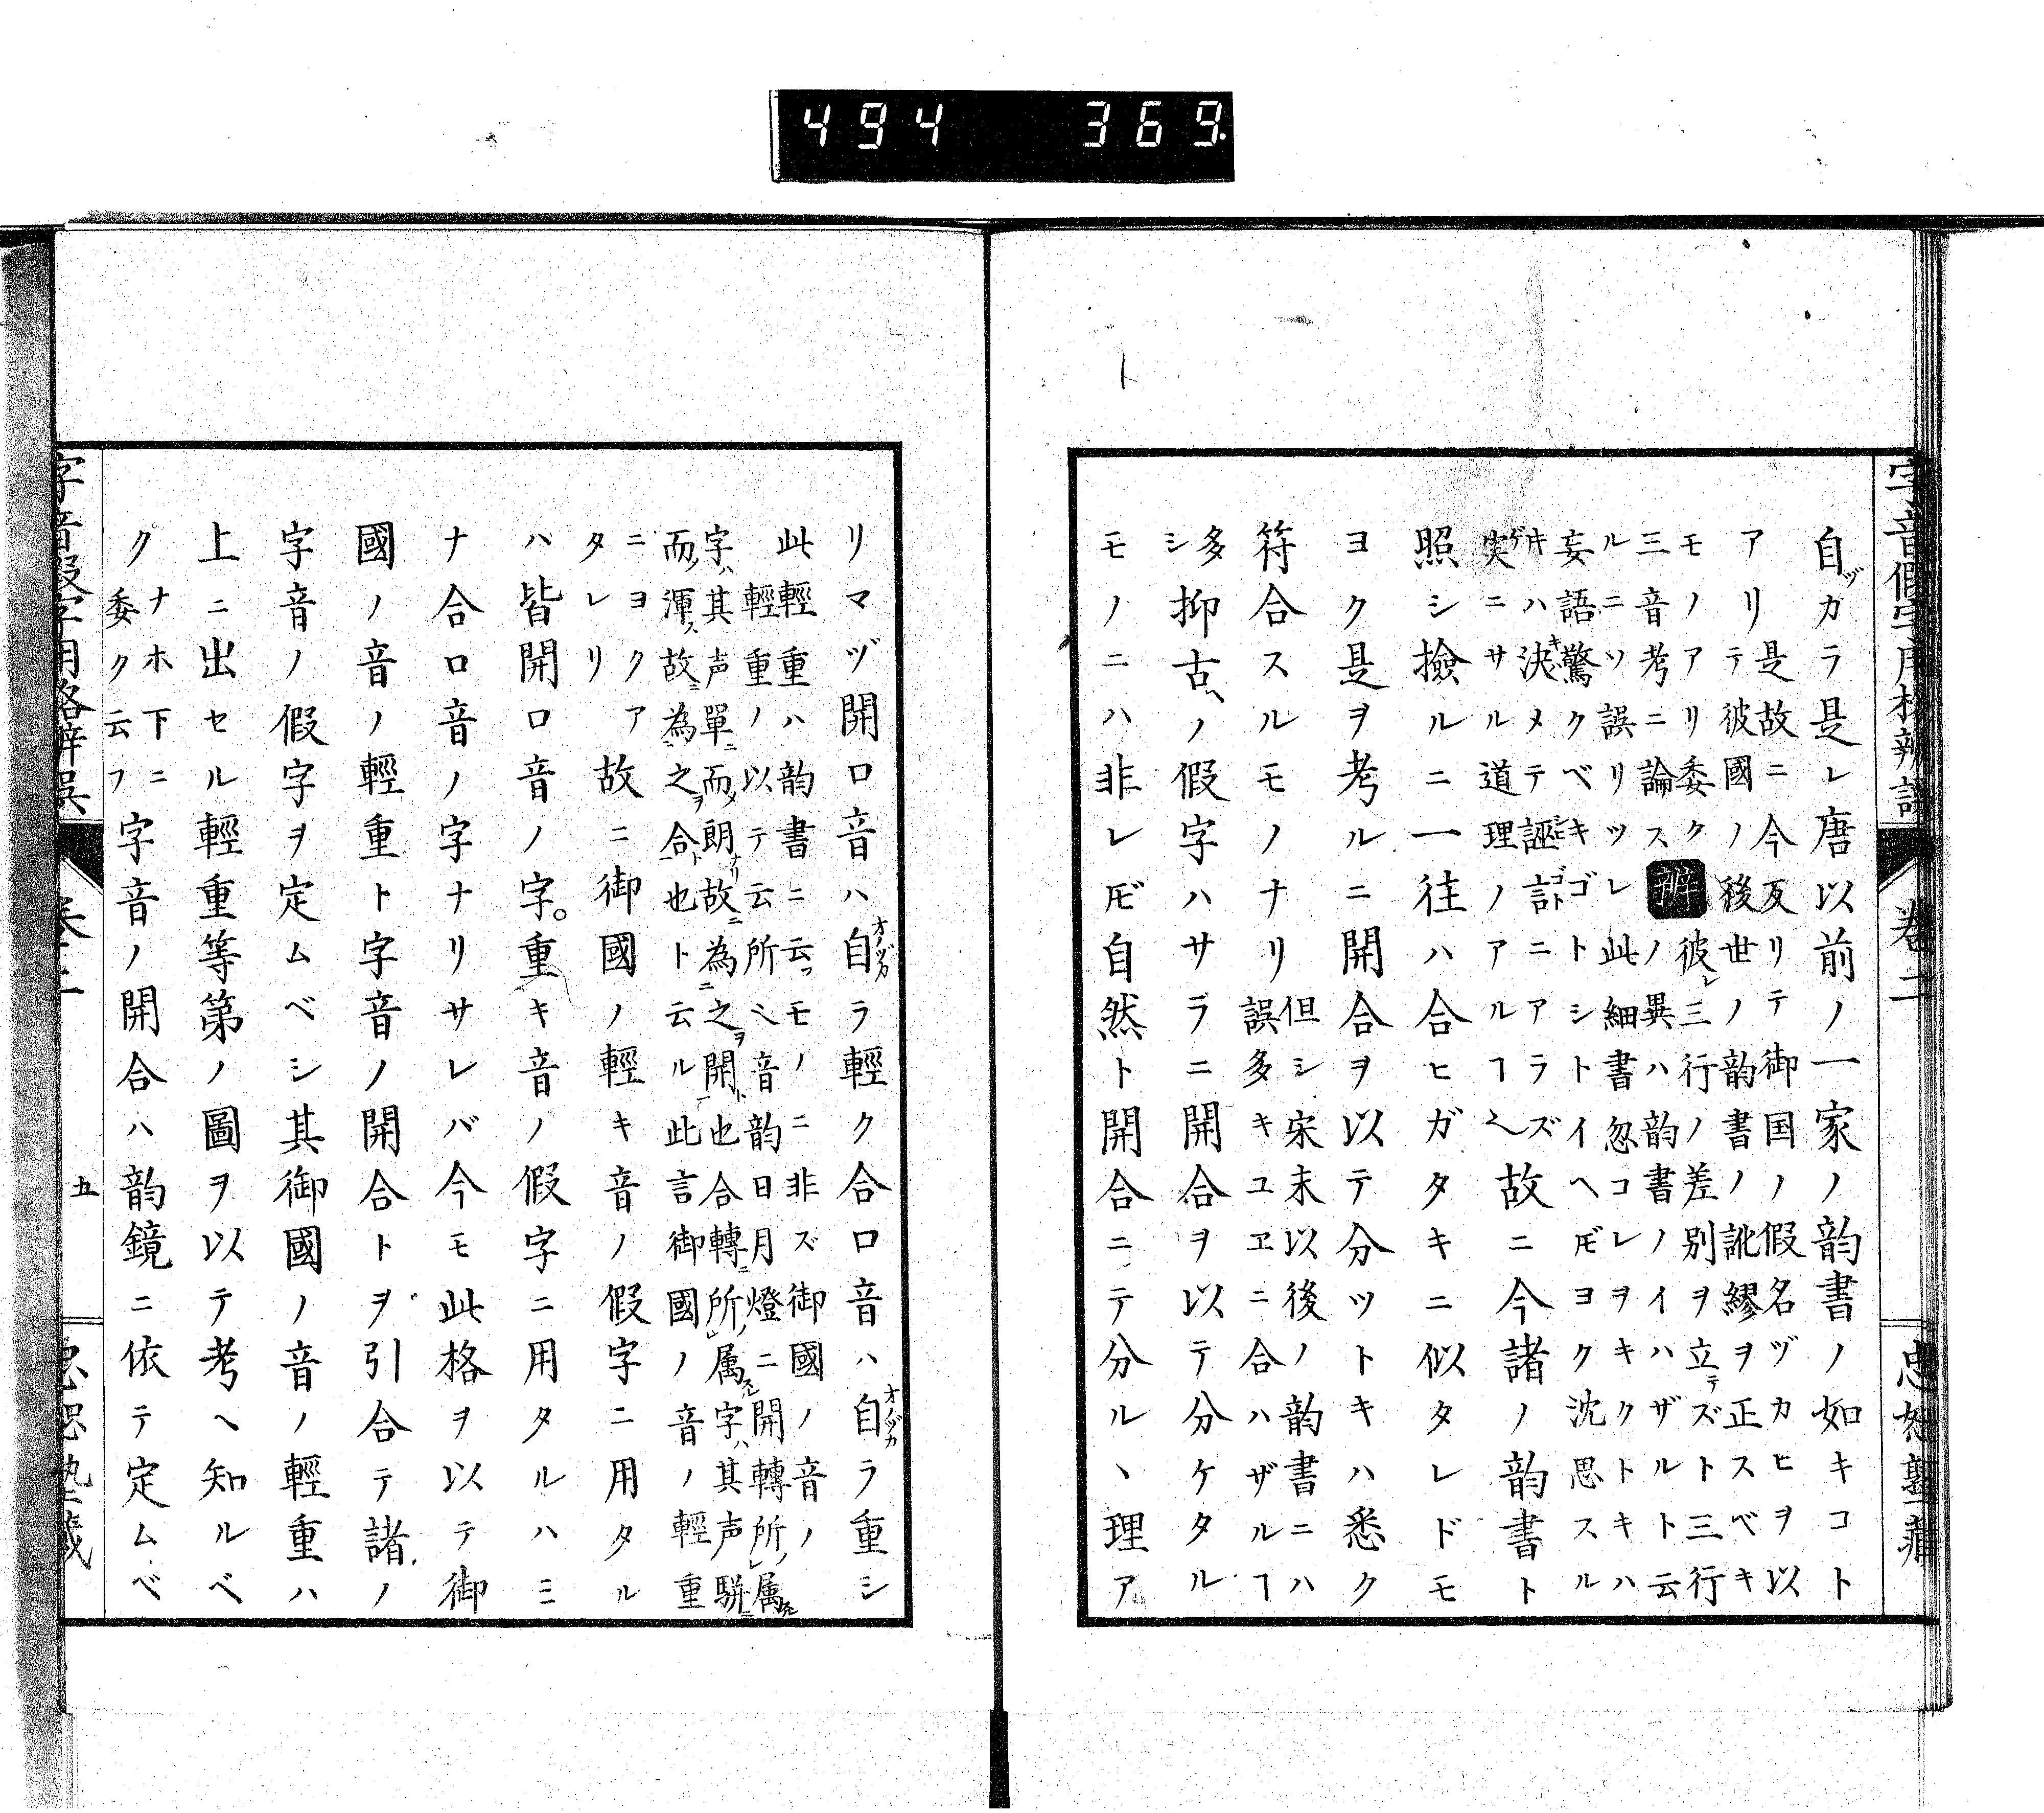 字音假字用格辨誤 卷二 忠恕塾藏
自ヅカラ是レ唐以前ノ一家ノ韵書ノ如キコト
アリ
是故ニ今反リテ御国ノ假名ヅカヒヲ以
テ彼國ノ後世ノ韵書ノ訛繆ヲ正スベキ
モノアリ委ク
三音考ニ論ス
辨
彼レ三行ノ差別ヲ立テズト三行
ノ異ハ韵書ノイハザルト云
ルニツ誤リツレ此細書忽コレヲキクトキハ
妄語驚クベキゴトシトイヘ𪜈ヨク沈思スル
キハ決メテ誣言ニアラズ
実ニサル道理ノアルヿ也
故ニ今諸ノ韵書ト
照シ撿ルニ一往ハ合ヒガタキニ似タレドモ
ヨク是ヲ考ルニ開合ヲ以テ分ツトキハ悉ク
符合スルモノナリ
但シ宋末以後ノ韵書ニハ
誤多キユヱニ合ハザルヿ
多シ
抑古ヘノ假字ハサラニ開合ヲ以テ分ケタル
モノニハ非レ𪜈自然ト開合ニテ分ルヽ理ア
リマヅ開口音ハ自ラ輕ク合口音ハ自ラ重シ
此輕重ハ韵書ニ云フモノニ非ズ御國ノ音ノ
輕重ノ以テ云所ヘ音韵日月燈ニ開轉所ノレ属スル
字ハ其声單ニ而メ朗ナリ故ニ為ニ之ヲ開ト也合轉ニ所ノレ属スル字ハ其声駢ニ
而メ渾ス故ニ為ニ之ヲ合ト也ト云ル此言御國ノ音ノ輕重
ニヨクア
タレリ
故ニ御國ノ輕キ音ノ假字ニ用タル
ハ皆開口音ノ字。重キ音ノ假字ニ用タルハミ
ナ合口音ノ字ナリサレバ今モ此格ヲ以テ御
國ノ音ノ輕重ト字音ノ開合トヲ引合テ諸ノ
字音ノ假字ヲ定ムベシ其御國ノ音ノ輕重ハ
上ニ出セル輕重等第ノ圖ヲ以テ考ヘ知ルベ
ク
ナホ下ニ
委ク云フ
字音ノ開合ハ韵鏡ニ依テ定ムベ
字音假字用格辨誤 卷二 五 忠恕塾藏
494 369